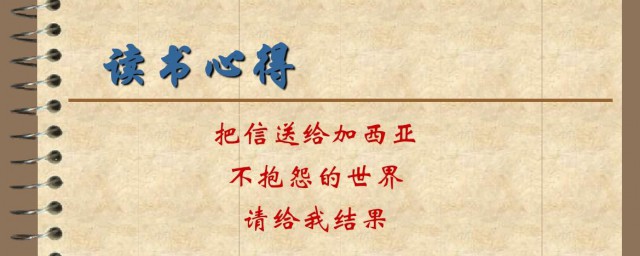 读书心得
把信送给加西亚
不抱怨的世界
请给我结果